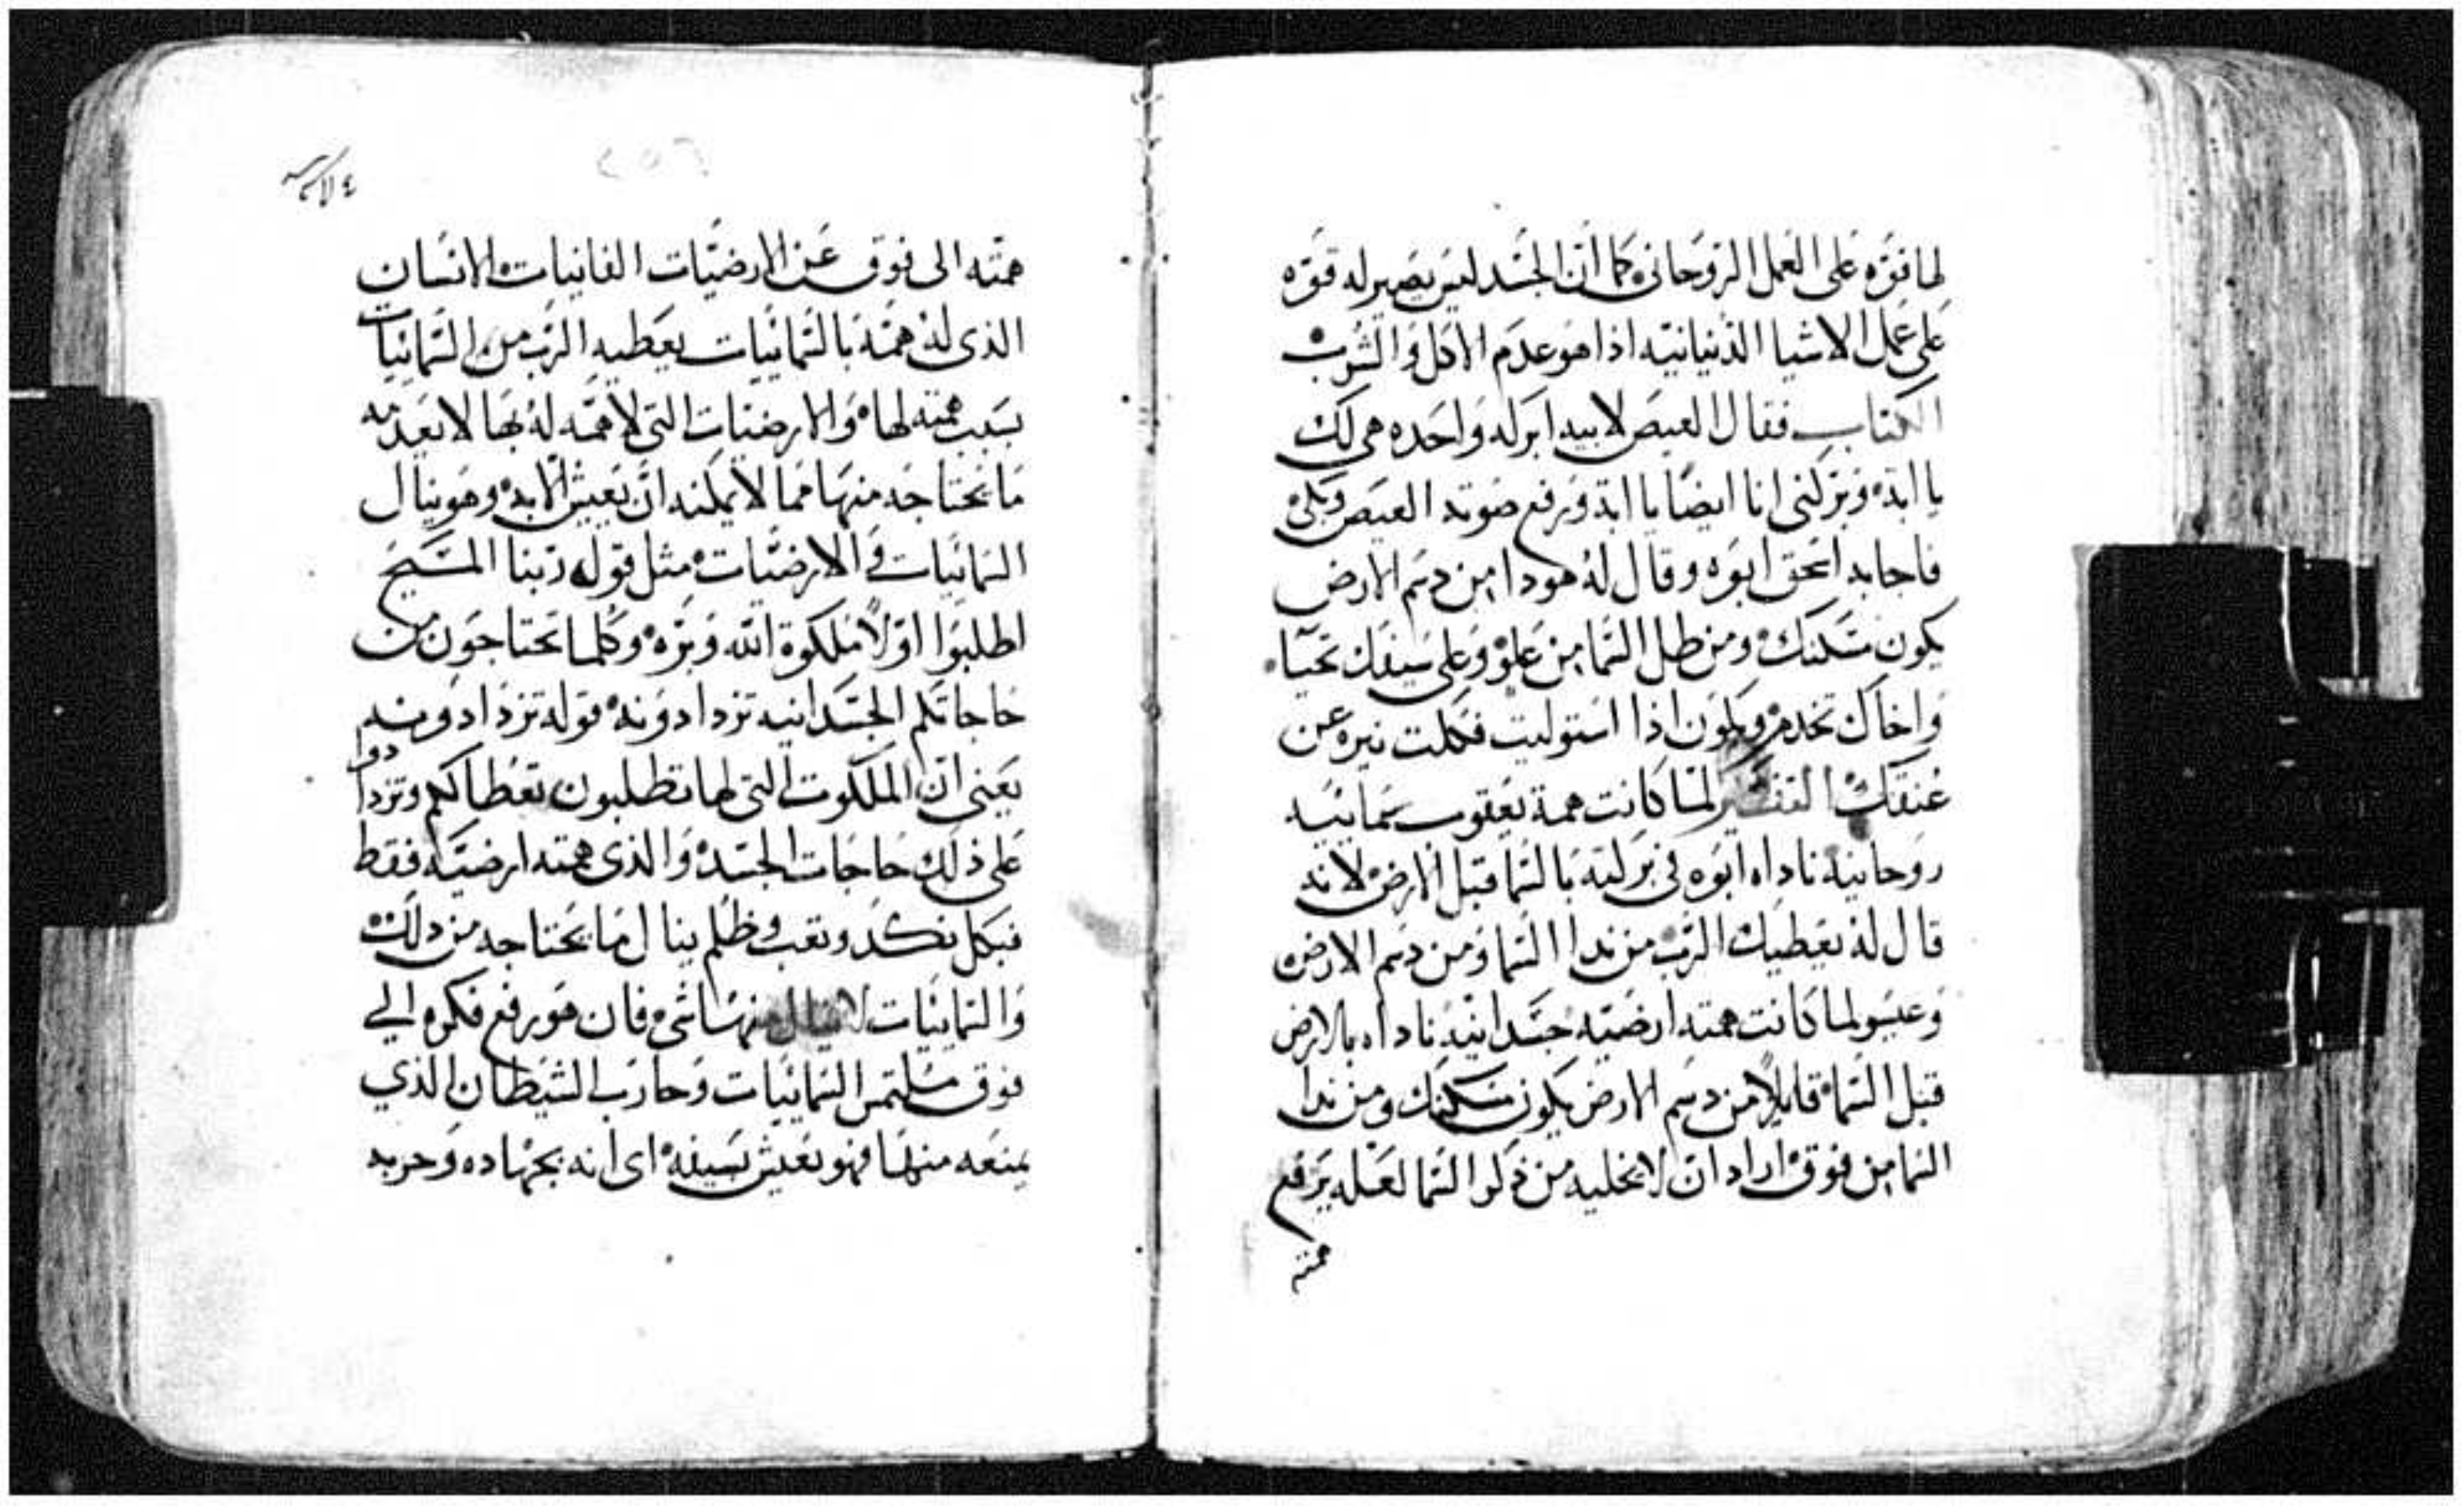 لها قوّه على العمل الروحاني كما ان الجسد ليس يصير له قوّه
على عمل الاشيا الدنيانيه اذا هو عدم الاكل والشرب
الكتاب فقال العيص لابيه ابركه واحده هي لك
يا ابة وبركني انا ايضًا يا ابة ورفع صوته العيص وبكى
فاجابه اسحق ابوه وقال له هودا من دسم الارض
يكون مسكنك ومن طل السما من علو وعلى سيفك تحيا
واخاك تخدم ويكون اذا استوليت فكلت نيره عن
عنقك التفسير لما كانت همة يعقوب سمائيه
روحانيه ناداه ابوه في بركته بالسما قبل الارض لانه
قال له يعطيك الرب من ندا السما ومن دسم الارض
وعيسو لما كانت همته ارضيه جسدانيه ناداه بالارض
قبل السما قايلاً من دسم الارض يكون مسكنك ومن ندا
السما من فوق اراد ان لا يخليه من ذكر السما لعله يرفع
همته
همته الى فوق عن الارضيّات الفانيات الانسان
الذي له همّة بالسّمائيّات يعطيه الربّ من السّمائيّات
بسبب همته لها والارضيات التي لا همّه له بها لا يعدمه
ما يحتاجه منها مما لا يمكنه ان يعيش الا به وهو ينال
السمائيات والارضيّات مثل قول ربنا المسيح
اطلبوا اوّلاً ملكوة الله وبرّه وكلما تحتاجون من
حاجاتكم الجسدانيه تزدادونه قوله تزدادونه
يعني ان الملكوت التي لها تطلبون تعطا لكم وتزدادوا
على ذلك حاجات الجسد والذي همته ارضيّه فقط
فبكل نكد وتعب وظلم ينال ما يحتاجه من ذلك
والسمائيّات لا ينال منها شي فان هو رفع فكره الي
فوق ملتمس السمائيّات وحارب الشيطان الذي
يمنعه منها فهو يعيش بسيفه اي انه بجهاده وحربه